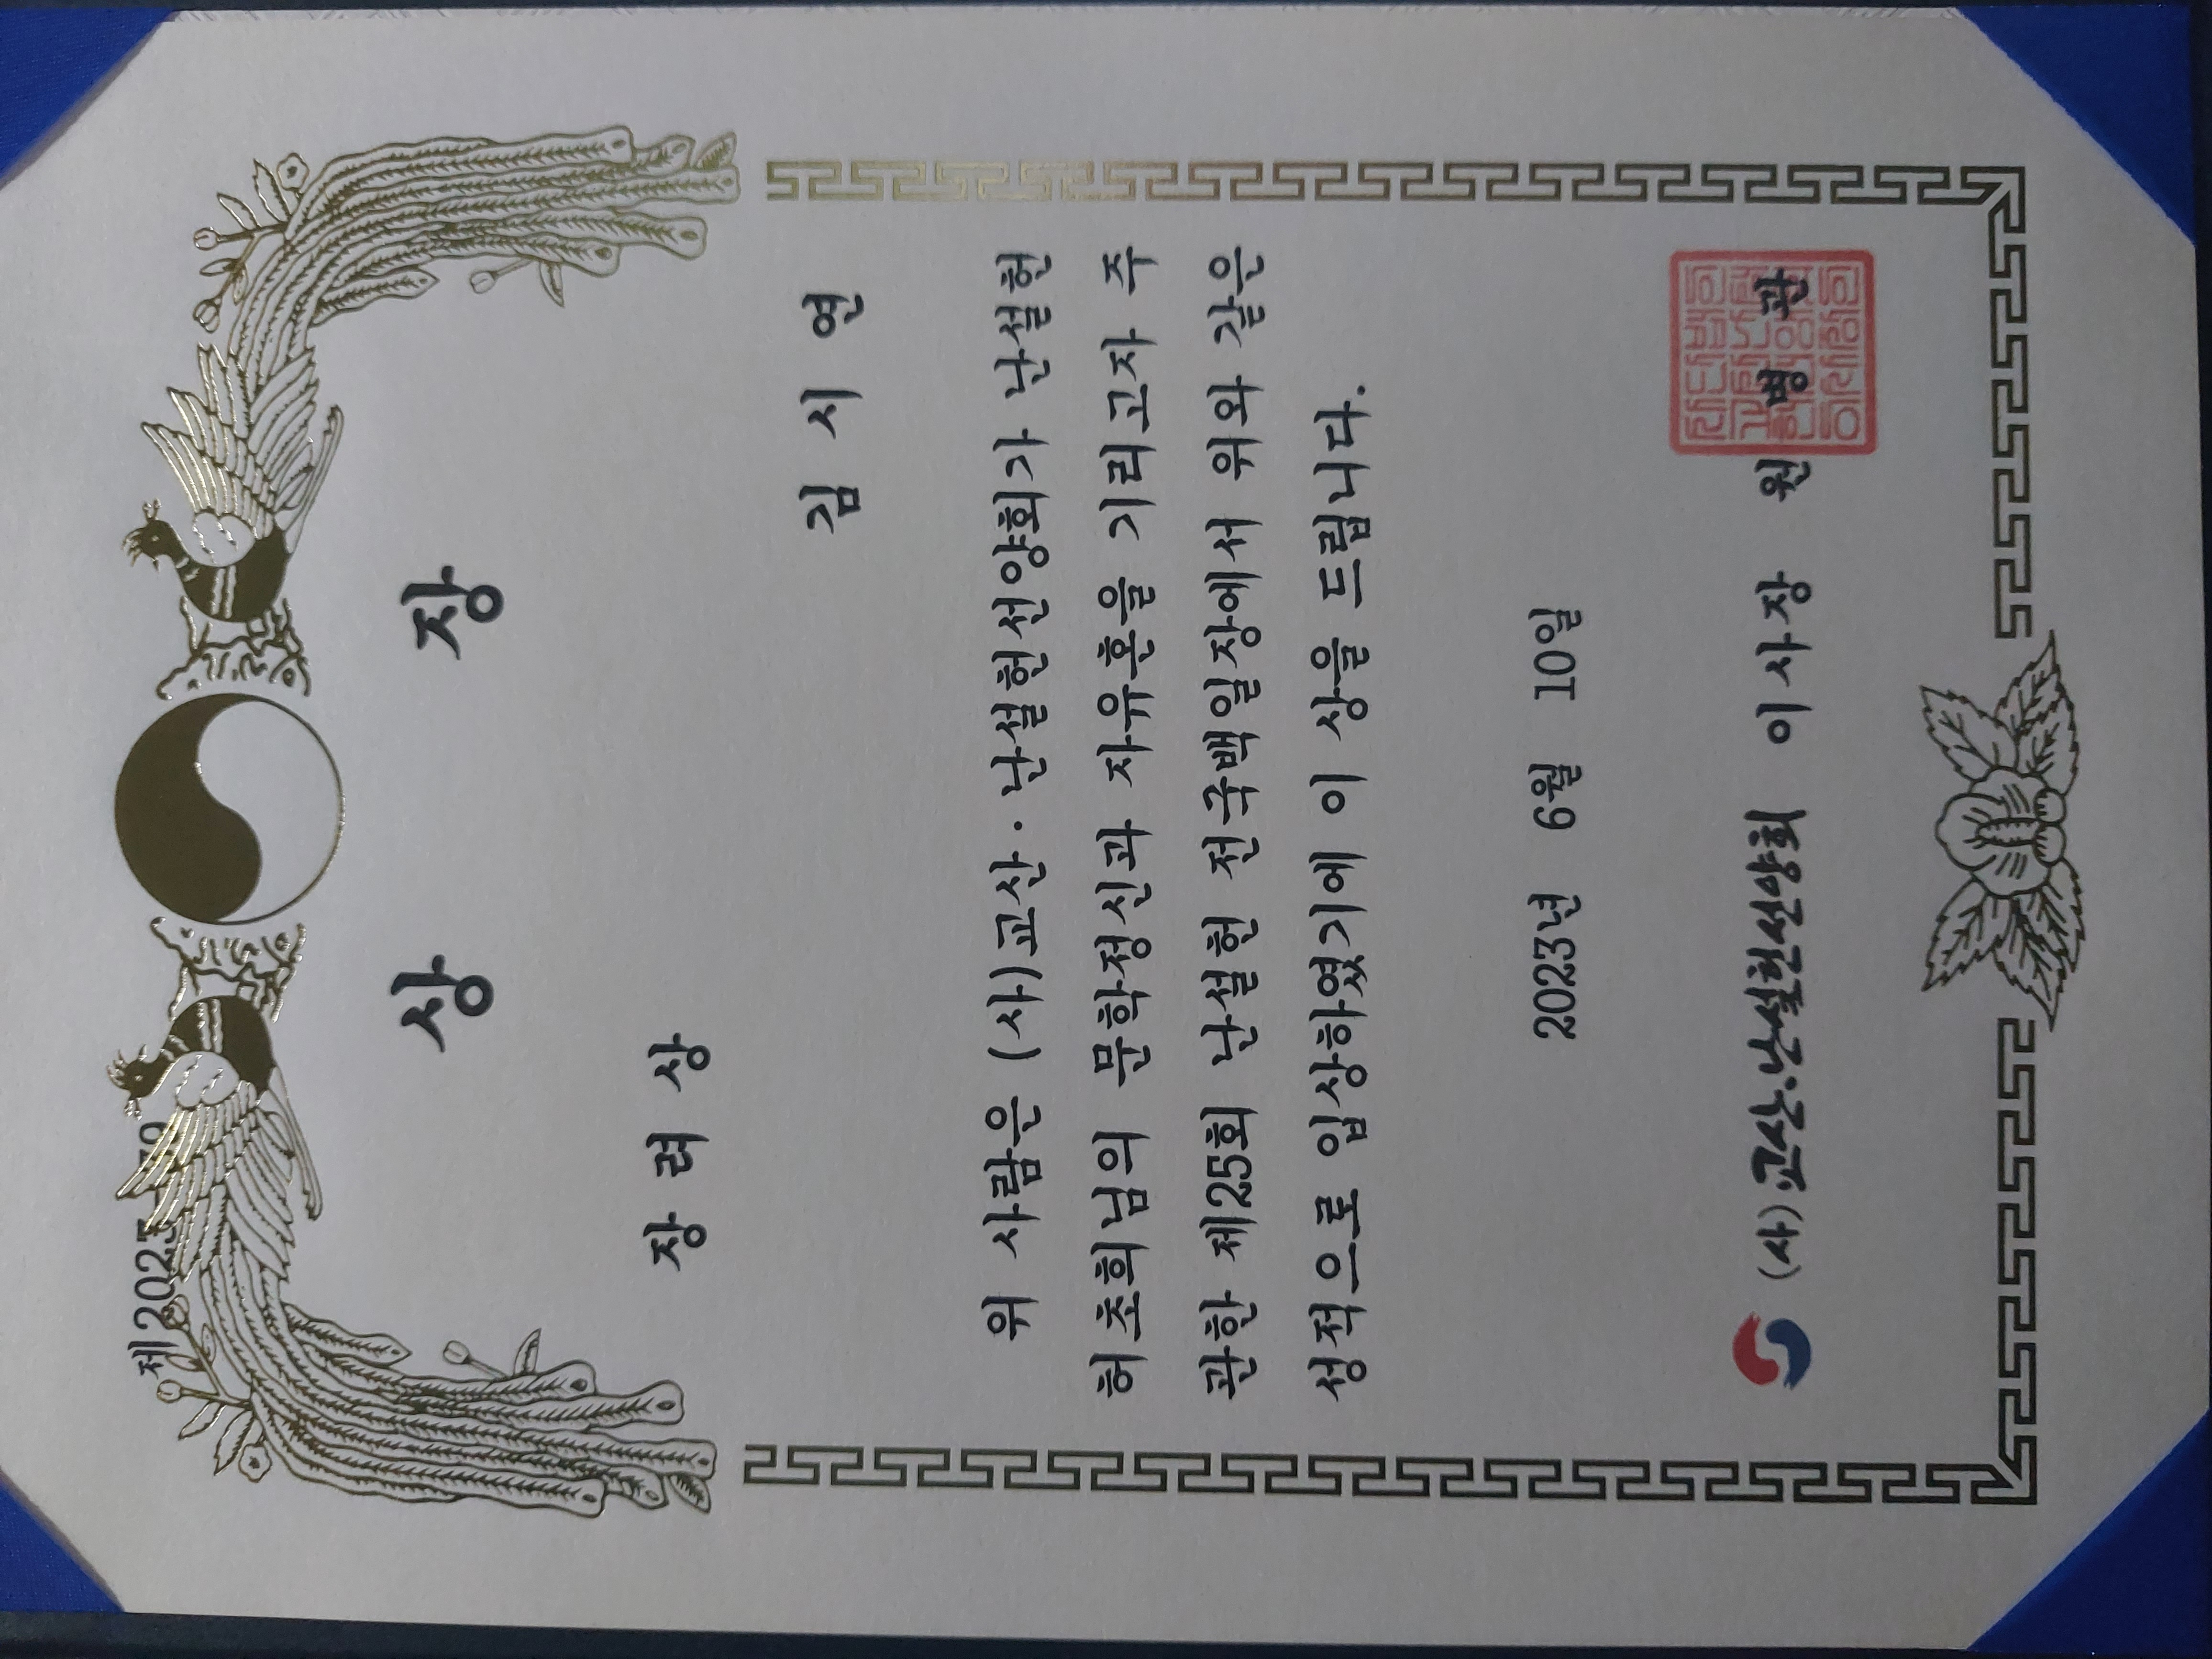 제2023-
상 장
장 려 상
김 시 연
위 사람은 (사)교산·난설헌선양회가 난설헌
허초희님의 문학정신과 자유혼을 기리고자 주
관한 제25회 난설헌 전국백일장에서 위와 같은
성적으로 입상하였기에 이 상을 드립니다.
2023년 6월 10일
(사)교산·난설헌선양회 이사장 원 병 관